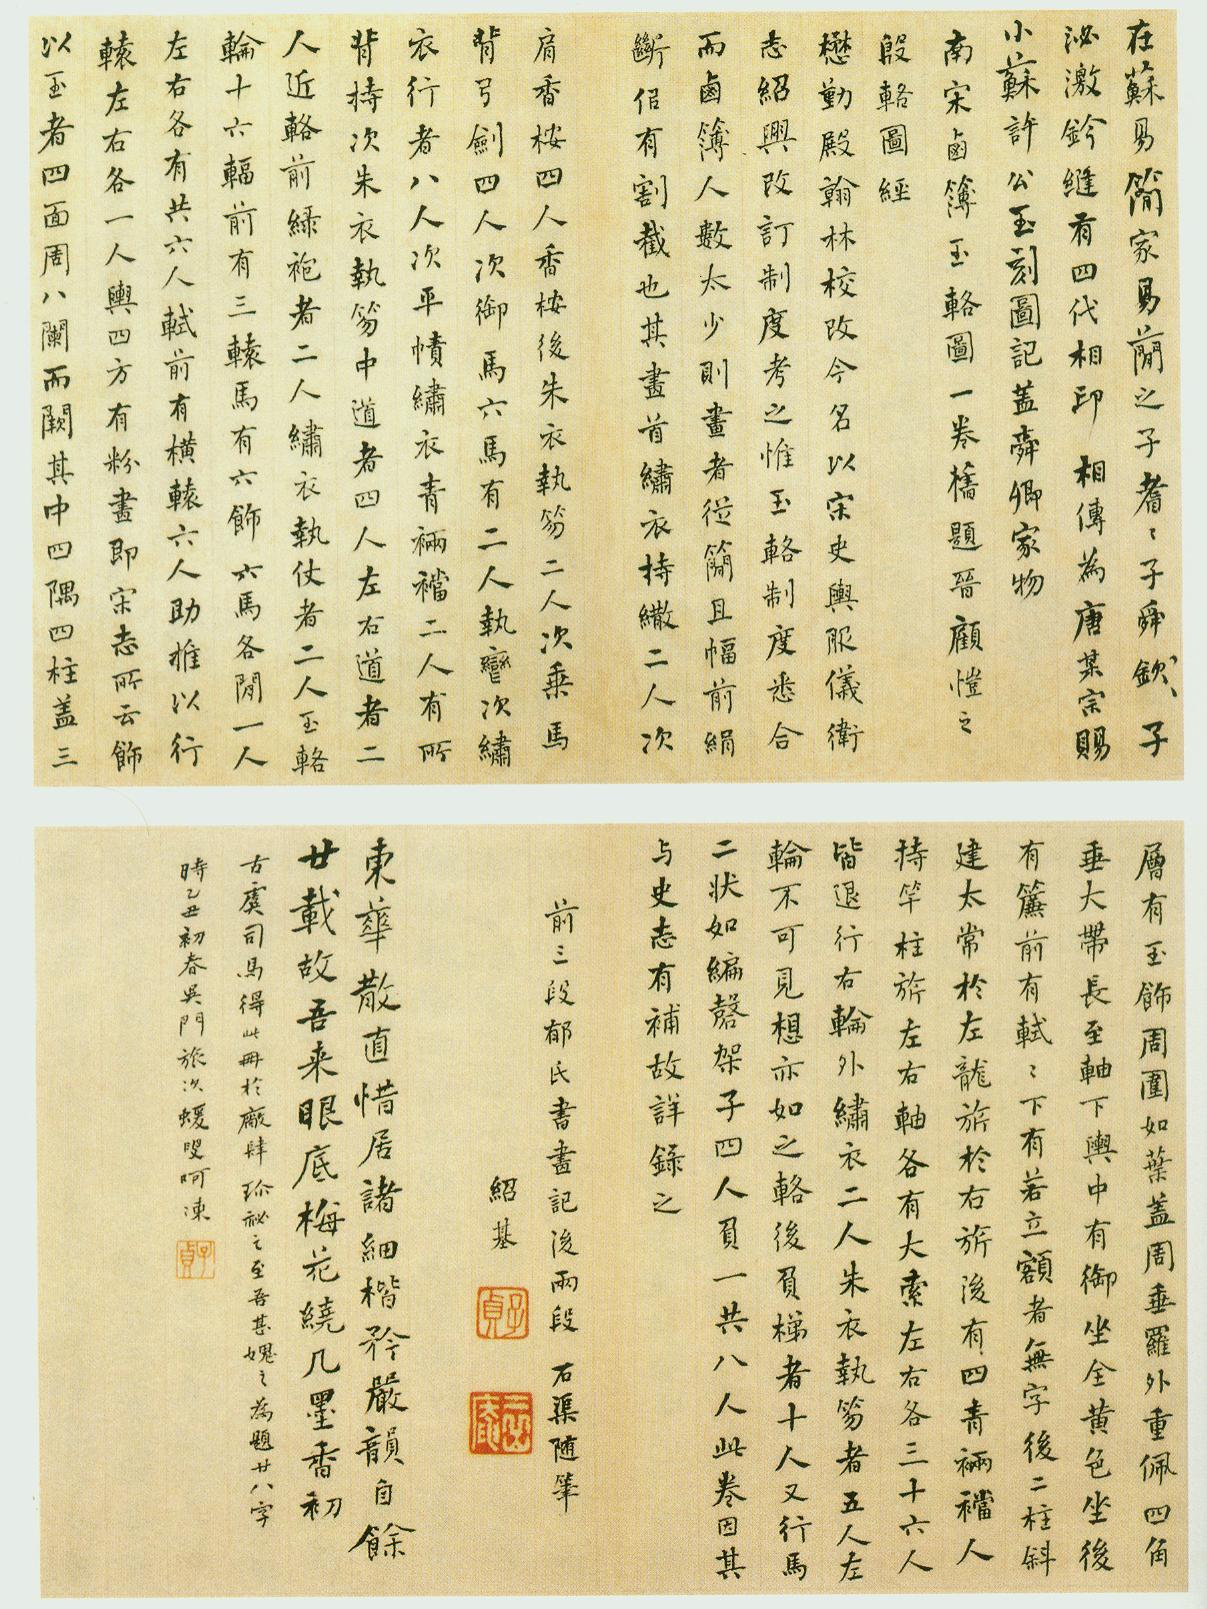 在蘇易簡家易簡之子耆〻子舜欽〻子
泌激鈐縫有四代相印 相傳為唐某宗賜
小蘇許公玉刻圖記蓋舜卿家物
南宋鹵簿玉輅圖一卷舊題晉顧愷之
殷輅圖經
懋勤殿翰林校改今名以宋史輿服儀衛
志紹興改訂制度考之惟玉輅制度悉合
而鹵簿人數太少則畫者從簡且幅前絹
斷似有割截也其畫首繡衣持繖二人次
肩香桉四人香桉後朱衣執笏二人次乘馬
背弓劍四人次御馬六馬有二人執轡次繡
衣行者八人次平幘繡衣青裲襠二人有所
背持次朱衣執笏中道者四人左右道者二
人近輅前綠袍者二人繡衣執仗者二人玉輅
輪十六輻前有三轅馬有六飾六馬各閒一人
左右各有共六人軾前有橫轅六人助推以行
轅左右各一人輿四方有粉畫即宋志所云飾
以玉者四面周八闌而闕其中四隅四柱蓋三
層有玉飾周圍如葉蓋周垂羅外重佩四角
垂大帶長至軸下輿中有御坐全黄色坐後
有簾前有軾〻下有若立額者無字後二柱斜
建太常於左龍旂於右旂後有四青裲襠人
持竿柱旂左右軸各有大索左右各三十六人
皆退行右輪外繡衣二人朱衣執笏者五人左
輪不可見想亦如之輅後負梯者十人又行馬
二狀如編磬架子四人負一共八人此卷因其
与史志有補故詳錄之
前三段郁氏書畫記後兩段 石渠随筆
紹基
子貞
東華散直惜居諸細楷矜嚴韻自餘
廿載故吾来眼底梅花繞几墨香初
古虞司馬得此冊於廠肆珎祕之至吾甚媿之為題廿八字
時乙丑初春吳門旅次蝯叟呵凍
子貞